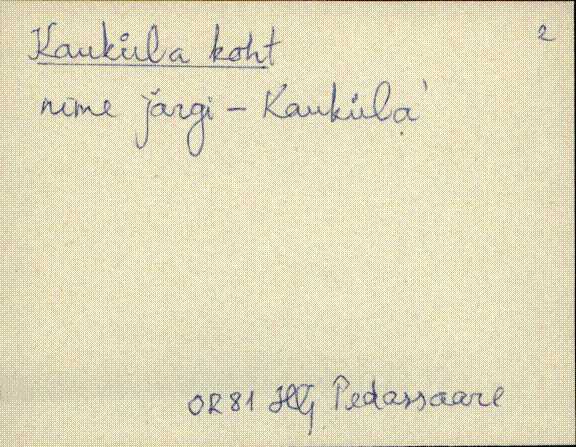 2
Kauküla koht
nime järgi – Kauküla'
0281 HG Pedassaare